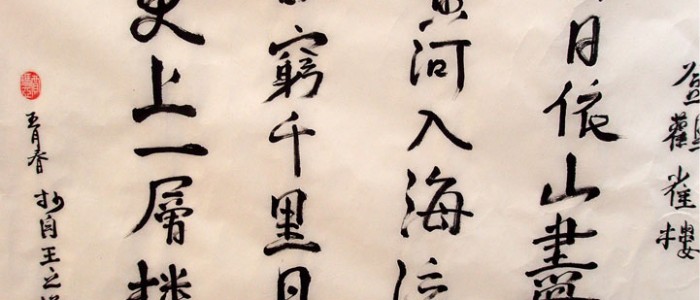 登鸛雀樓
日依山盡
黃河入海流
窮千里目
更上一層樓
青春 抄自王之